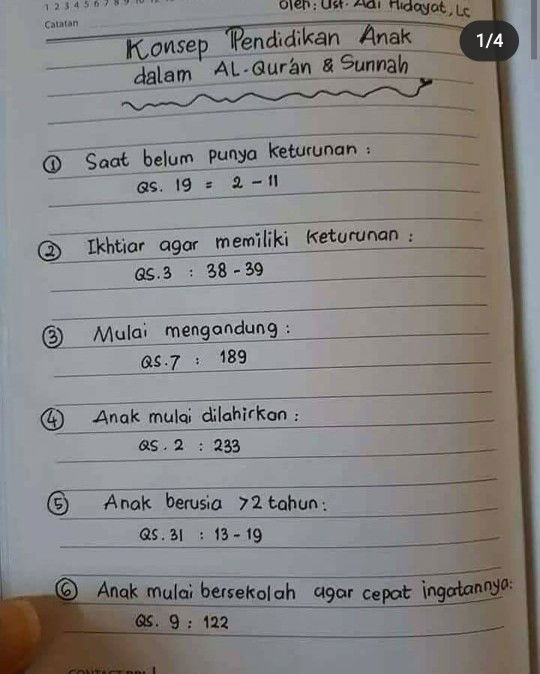 1 2 3 4 5 6 7 8 9 10
Oleh: Ust. Adi Hidayat, Lc
Catatan
1/4
Konsep Pendidikan Anak
dalam AL-Qur'an & Sunnah
① Saat belum punya keturunan :
QS. 19 : 2 - 11
② Ikhtiar agar memiliki keturunan :
QS.3 : 38 - 39
③ Mulai mengandung :
QS.7 : 189
④ Anak mulai dilahirkan :
QS. 2 : 233
⑤ Anak berusia >2 tahun :
QS. 31 : 13 - 19
⑥ Anak mulai bersekolah agar cepat ingatannya:
QS. 9 : 122